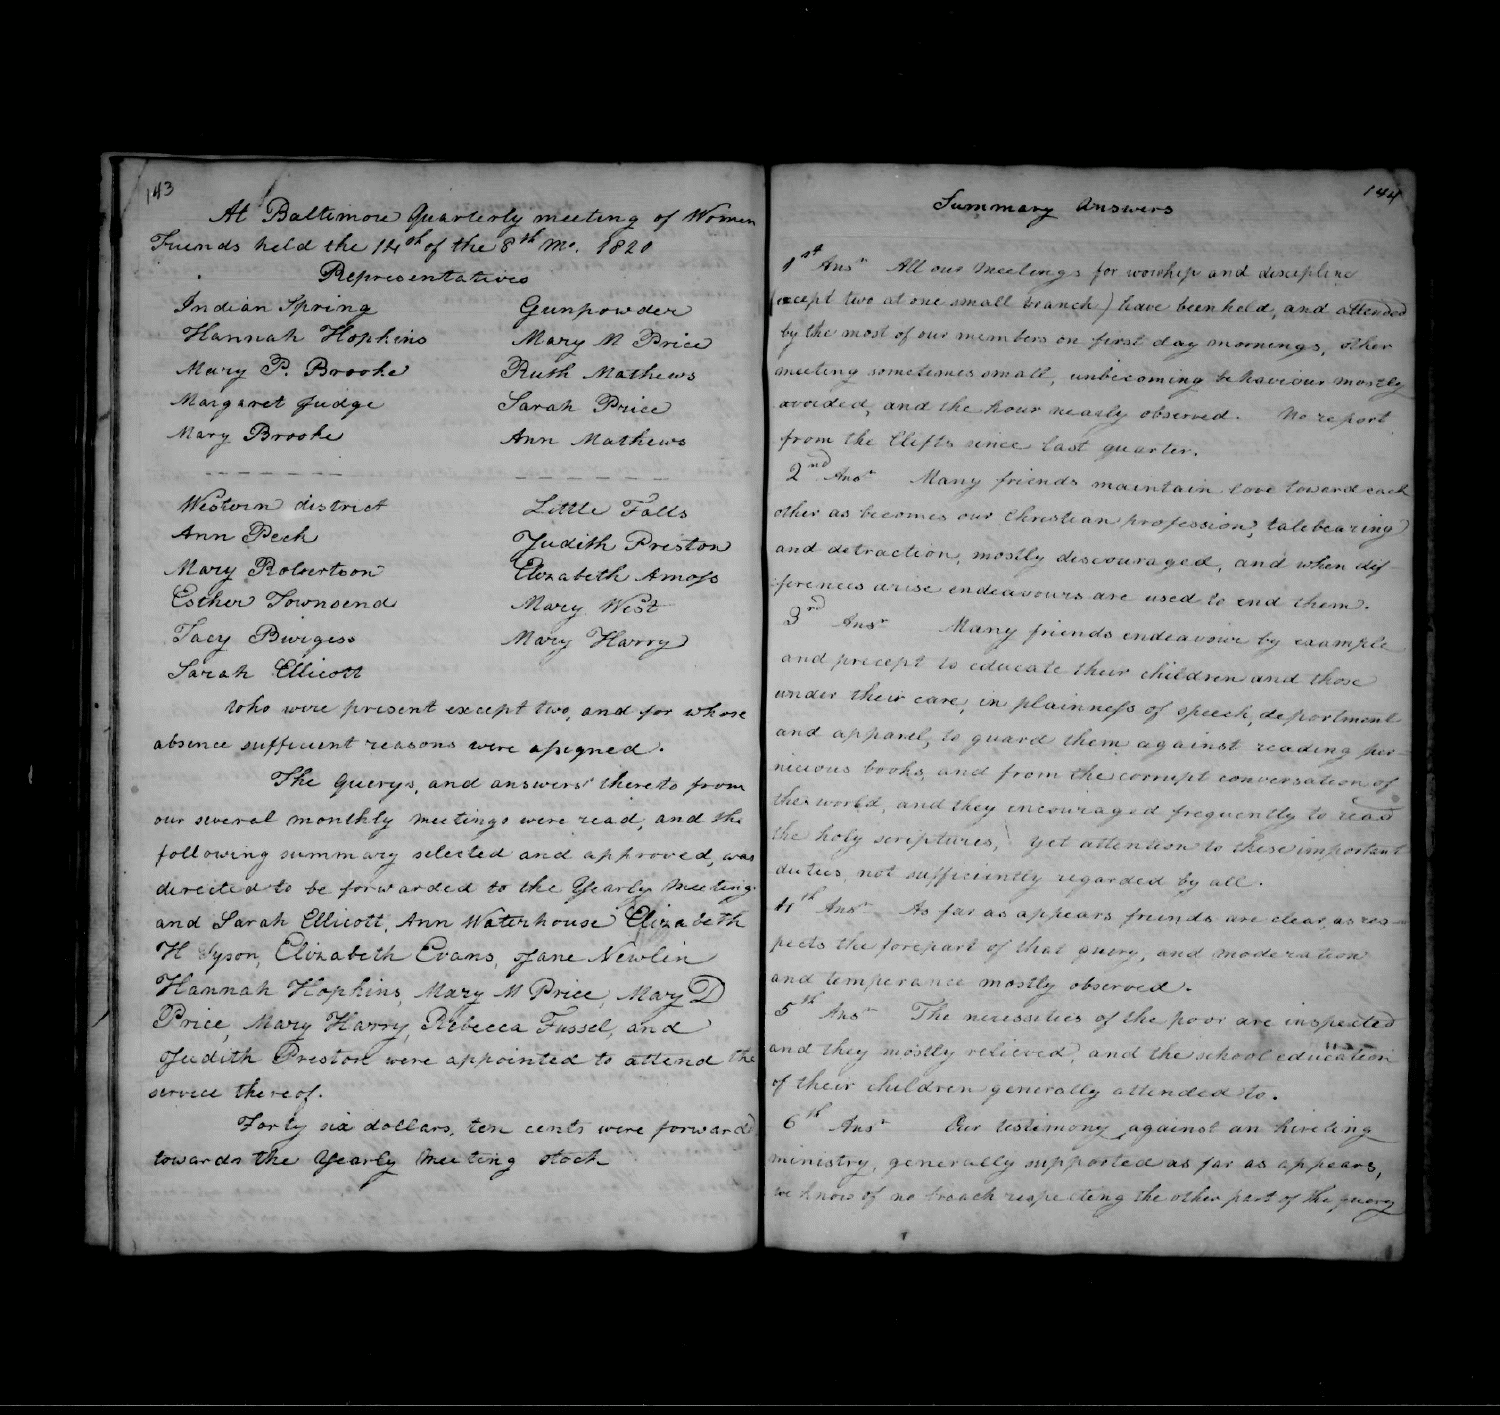 143
At Baltimore Quarterly meeting of Women
Friends held the 14th of the 8th Mo. 1820
Representatives
Indian Spring
Hannah Hopkins
Mary P. Brooke
Margaret Judge
Mary Brooke
Gunpowder
Mary M Price
Ruth Mathews
Sarah Price
Ann Mathews
Western district
Ann Peck
Mary Robertson
Esther Townsend
Tacy Burgess
Sarah Ellicott
Little Falls
Judith Preston
Elizabeth Amoss
Mary West
Mary Harry
Who were present except two, and for whose
absence sufficient reasons were assigned.
The Querys, and answers thereto from
our several monthly meetings were read, and the
following summary selected and approved, was
directed to be forwarded to the Yearly Meeting
and Sarah Ellicott, Ann Waterhouse Elizabeth
H Tyson, Elizabeth Evans, Jane Newlin
Hannah Hopkins, Mary M Price, Mary D
Price, Mary Harry, Rebecca Fussel, and
Judith Preston were appointed to attend the
service thereof.
Forty six dollars, ten cents were forward
towards the Yearly Meeting stock
144
Summary Answers
1st Ansr All our Meetings for worship and discipline
(except two at one small branch) have been held, and attended
by the most of our members on first day mornings, other
meeting sometimes small, unbecoming behaviour mostly
avoided, and the hour nearly observed. No report
from the Clifts since last quarter.
2nd Ansr Many friends maintain love toward each
other as becomes our Christian profession, talebearing
and detraction, mostly discouraged, and when dif-
ferences arise endeavours are used to end them.
3rd Ansr Many friends endeavour by example
and precept to educate their children and those
under their care, in plainness of speech, deportment
and apparel, to guard them against reading per-
nicious books, and from the corrupt conversation of
the world, and they encouraged frequently to read
the holy scriptures, yet attention to these important
duties, not sufficiently regarded by all.
4th Ansr As far as appears friends are clear, as res-
pects the forepart of that query, and moderation
and temperance mostly observed.
5th Ansr The necessities of the poor are inspected
and they mostly relieved, and the school education
of their children generally attended to.
6th Ansr Our testimony against an hireling
ministry, generally supported as far as appears,
we know of no breach respecting the other part of the query